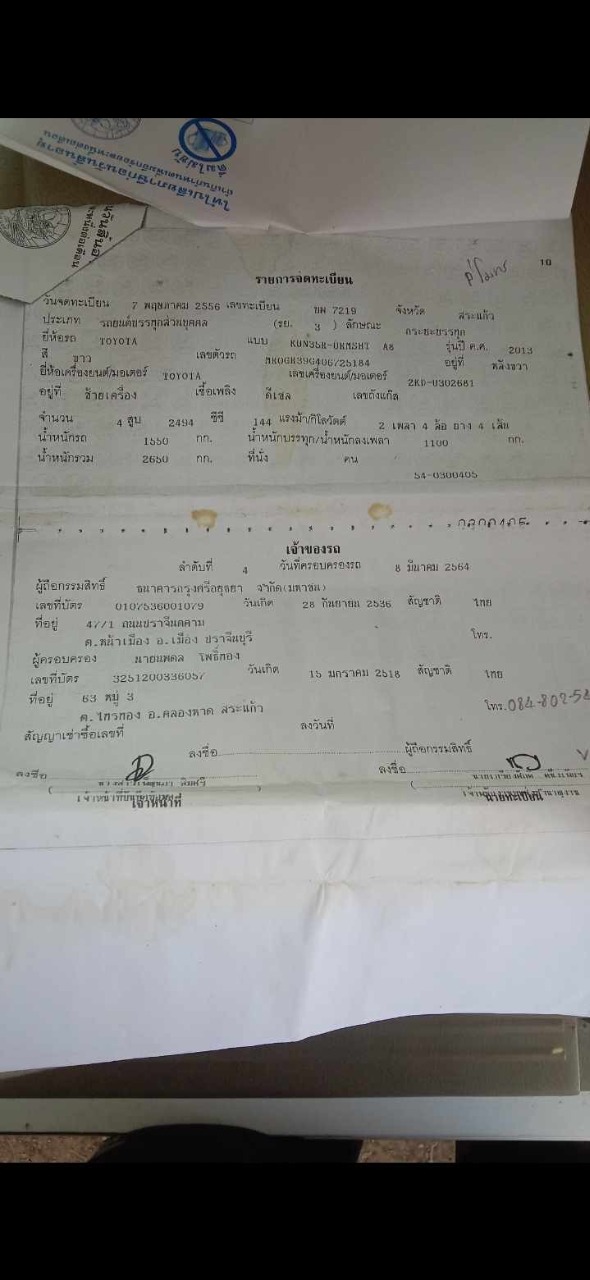 ให้ไปเสียภาษีก่อนวันสิ้นอายุ
ดื่มไม่ขับ
รายการจดทะเบียน
10
วันจดทะเบียน 7 พฤษภาคม 2556 เลขทะเบียน ขพ 7219 จังหวัด สระแก้ว
ประเภท รถยนต์บรรทุกส่วนบุคคล (รย. 3 ) ลักษณะ กระบะบรรทุก
ยี่ห้อรถ TOYOTA แบบ รุ่นปี ค.ศ. 2013
สี ขาว เลขตัวรถ อยู่ที่
ยี่ห้อเครื่องยนต์/มอเตอร์ TOYOTA เลขเครื่องยนต์/มอเตอร์ 2KD-U302681
อยู่ที่ ซ้ายเครื่อง เชื้อเพลิง ดีเซล เลขถังแก๊ส
จำนวน 4 สูบ 2494 ซีซี 144 แรงม้า/กิโลวัตต์ 2 เพลา 4 ล้อ ยาง 4 เส้น
น้ำหนักรถ 1550 กก. น้ำหนักบรรทุก/น้ำหนักลงเพลา 1100 กก.
น้ำหนักรวม 2650 กก. ที่นั่ง คน
54-0300405
เจ้าของรถ
ลำดับที่ 4 วันที่ครอบครองรถ 8 มีนาคม 2564
ผู้ถือกรรมสิทธิ์ ธนาคารกรุงศรีอยุธยา จำกัด(มหาชน)
เลขที่บัตร 0107536001079 วันเกิด 28 กันยายน 2536 สัญชาติ ไทย
ที่อยู่ 47/1 ถนนปราจีนตคาม
ต.หน้าเมือง อ.เมือง ปราจีนบุรี โทร.
ผู้ครอบครอง นายนพดล โพธิ์ทอง
เลขที่บัตร 3251200336057 วันเกิด 15 มกราคม 2518 สัญชาติ ไทย
ที่อยู่ 63 หมู่ 3 โทร. 084-802-54
ต.ไทรทอง อ.คลองหาด สระแก้ว
สัญญาเช่าซื้อเลขที่ ลงวันที่
ลงชื่อ ผู้ถือกรรมสิทธิ์
ลงชื่อ ลงชื่อ
เจ้าหน้าที่ นายทะเบียน